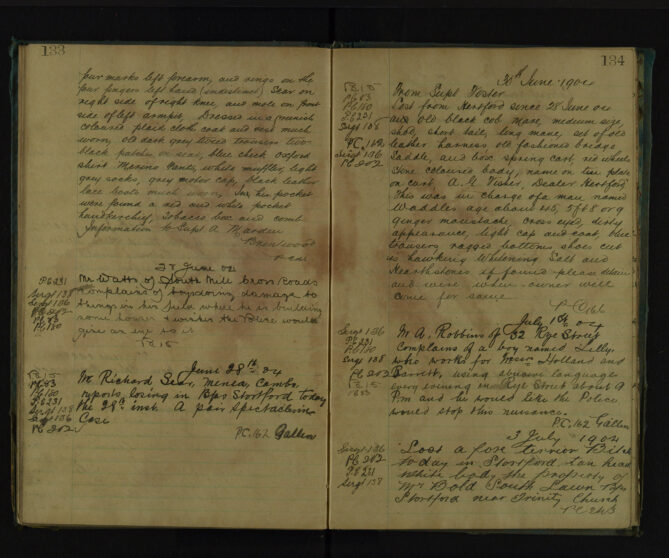 133
four marks left forearm, and rings on the
four fingers left hand (indistinct) Scar on
right side of right knee, and mole on front
side of left armpit. Dressed in a
coloured plaid cloth coat and vest much
worn, old dark grey trousers two
black patches on seat, blue check oxford
shirt Merino Pants, white muffler, light
grey socks, grey motor cap, black leather
lace boots much worn, In his pocket
were found a red and white pocket
handkerchief, tobacco box and comb
Information to Supt A. Marden
Brentwood
27 June 04
PC 231
Sergt 138
Sergt 136
PC 202
PC 83
PC 160
Mr Watts of South Mill Cross Roads
Complains of boys doing damage to
things in his field while he is building
some houses & wishes the Police would
give an eye to it
PC 15
June 28th 04
PC 15
PC 83
PC 160
PC 231
Sergt 138
Sergt 136
PC 202
Mr Richard Sear, Cambs
reports losing in Bps Stortford today
the 28th inst. A pair Spectacles in
Case
PC. 162 Gallen
134
30th June 1904
PC 15
PC 83
PC 160
PC 231
Sergt 138
PC 162
Sergt 136
PC 202
From Supt Foster
Lost from Hertford since 28 June 04
old black cob Mare, medium size,
shod, short tail, long mane, set of old
leather harness, old fashioned
saddle, and box spring cart, red wheels
coloured body, name on tin plate
on cart, A. G. Fisher, Dealer Hertford
This was in charge of a man named
Waddler age about 5ft 8 or 9
ginger moustache, cross eyed, dirty
appearance, light cap and coat, blue
trousers ragged bottoms shoes cut
is hawking Whitening Salt and
Hearthstones if found please detain
and wire when owner will
come for same
PC 166
July 1st 04
Sergt 136
PC 231
PC 160
Sergt 138
PC 202
PC 15
Mr A. Robbins of 52 Rye Street
Complains of a boy named Lilly,
who works for Messrs Holland and
Barrett, using obscene language
every evening in Rye Street about 9
Pm and he would like the Police
would stop this nuisance.
PC. 162 Gallen
3 July 1904
Sergt 136
PC 202
PC 231
Sergt 138
Lost a fox terrier Bitch
today in Stortford, tan head
white body the property of
Mr Bold South Lawn Bps
Stortford near Trinity Church
PC 243